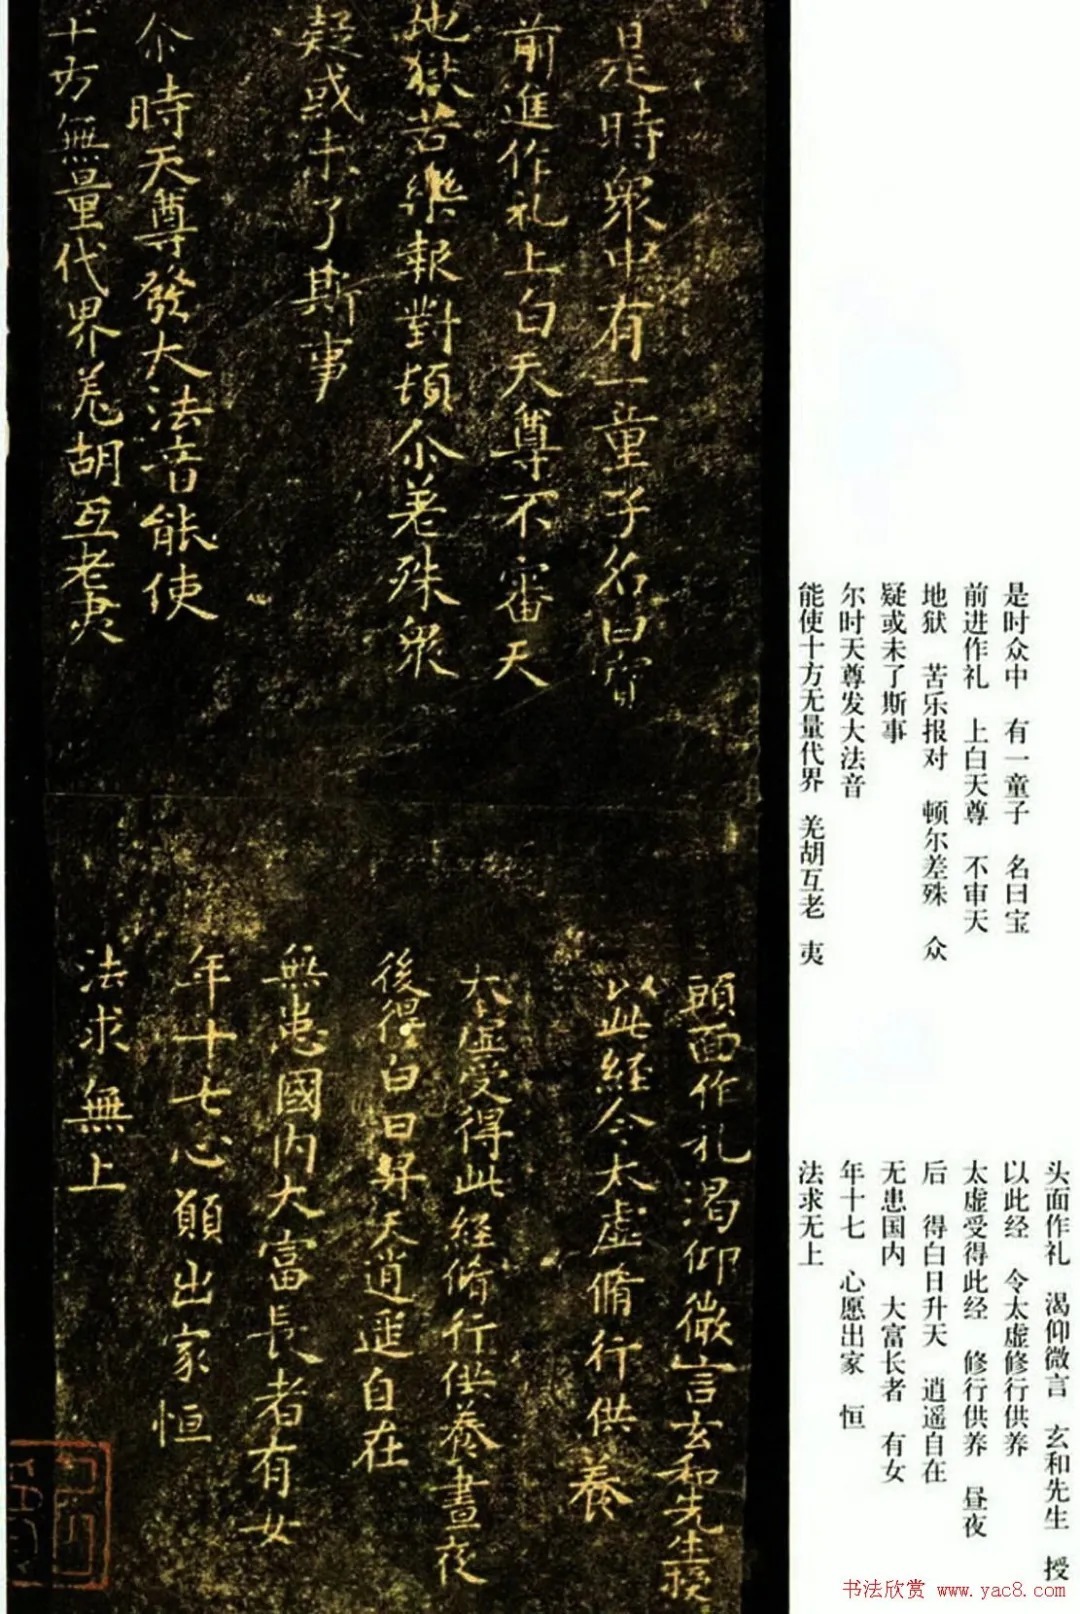 是時眾中有一童子名曰寶
前進作礼上白天尊不審天
地獄苦樂報對頓尒差殊眾
疑或未了斯事
尒時天尊發大法音能使
十方無量代界羗胡互老夷
頭面作礼渴仰微言玄和先生授
以此經令太虛脩行供養
太虛受得此經脩行供養晝夜
後得白日昇天逍遥自在
無患國内大富長者有女
年十七心願出家恒
法求無上
是时众中 有一童子 名曰宝
前进作礼 上白天尊 不审天
地狱 苦乐报对 顿尔差殊 众
疑或未了斯事
尔时天尊发大法音
能使十方无量代界 羌胡互老 夷
头面作礼 渴仰微言 玄和先生 授
以此经 令太虚修行供养
太虚受得此经 修行供养 昼夜
后 得白日升天 逍遥自在
无患国内 大富长者 有女
年十七 心愿出家 恒
法求无上
书法欣赏 www.yac8.com